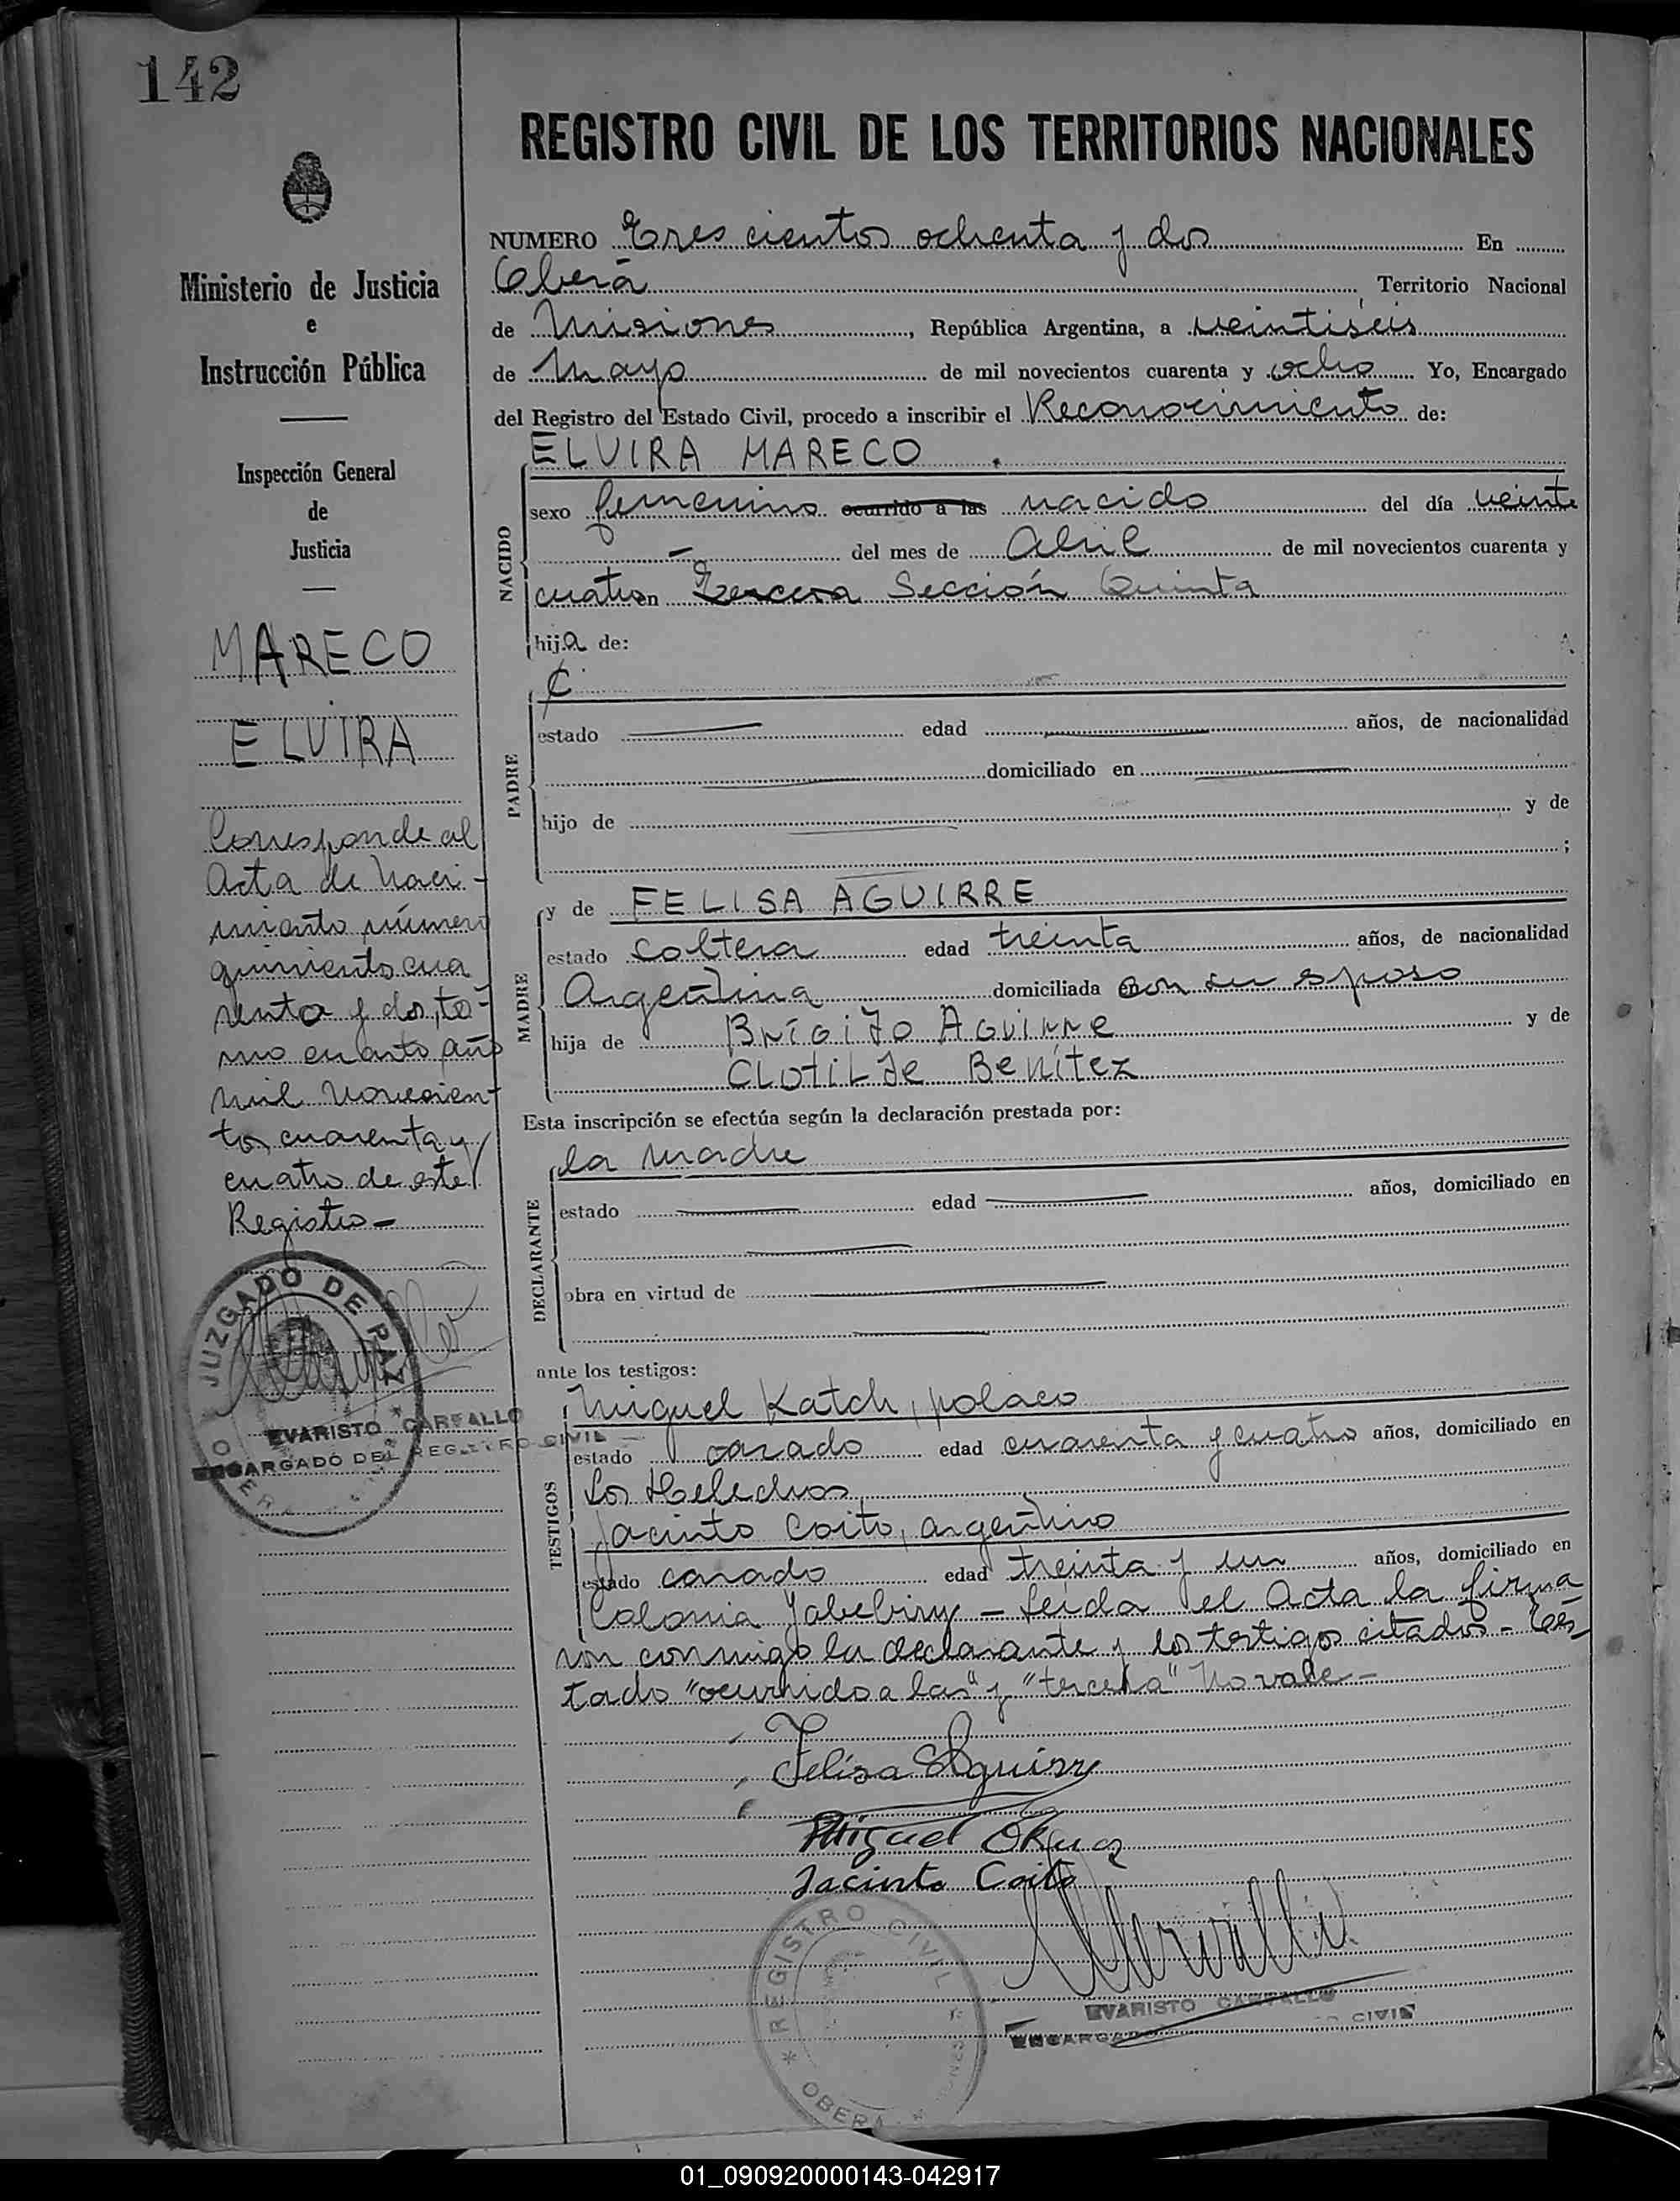 142
REGISTRO CIVIL DE LOS TERRITORIOS NACIONALES
Ministerio de Justicia
e
Instrucción Pública
Inspección General
de
Justicia
MARECO
ELVIRA
Corresponde al
Acta de Naci-
miento número
quiniento cua
renta y dos, to-
mo cuarto año
mil novecien-
tos cuarenta y
cuatro de este
Registro -
JUZGADO DE PAZ
EVARISTO CARVALLO
ENCARGADO DEL REGISTRO CIVIL
OBERA
NUMERO Tres cientos ochenta y dos En
Oberá Territorio Nacional
de Misiones, República Argentina, a veintiseis
de Mayo de mil novecientos cuarenta y ocho Yo, Encargado
del Registro del Estado Civil, procedo a inscribir el Reconocimiento de:
ELVIRA MARECO.
NACIDO
sexo femenino ocurrido a las nacido del día veinte
- del mes de Abril de mil novecientos cuarenta y
cuatro en Tercera Sección Quinta
hija de:
PADRE
estado edad años, de nacionalidad
domiciliado en
hijo de y de
;
MADRE
y de FELISA AGUIRRE
estado soltera edad treinta años, de nacionalidad
Argentina domiciliada con su esposo
hija de Brígido Aguirre y de
Clotilde Benítez
Esta inscripción se efectúa según la declaración prestada por:
DECLARANTE
la madre
estado edad años, domiciliado en
obra en virtud de
ante los testigos:
TESTIGOS
Miguel Katch, polaco
estado casado edad cuarenta y cuatro años, domiciliado en
Los Helechos
Jacinto Coito, argentino
estado casado edad treinta y un años, domiciliado en
Colonia Yabebiry - Leída el Acta la firma
ron conmigo la declarante y los testigos citados - Tes-
tado "ocurrido a las" y "tercera" No vale -
Felisa Aguirre
Miguel
Jacinto Coito
REGISTRO CIVIL
OBERA
EVARISTO CARVALLO
ENCARGADO CIVIL
01_090920000143-042917